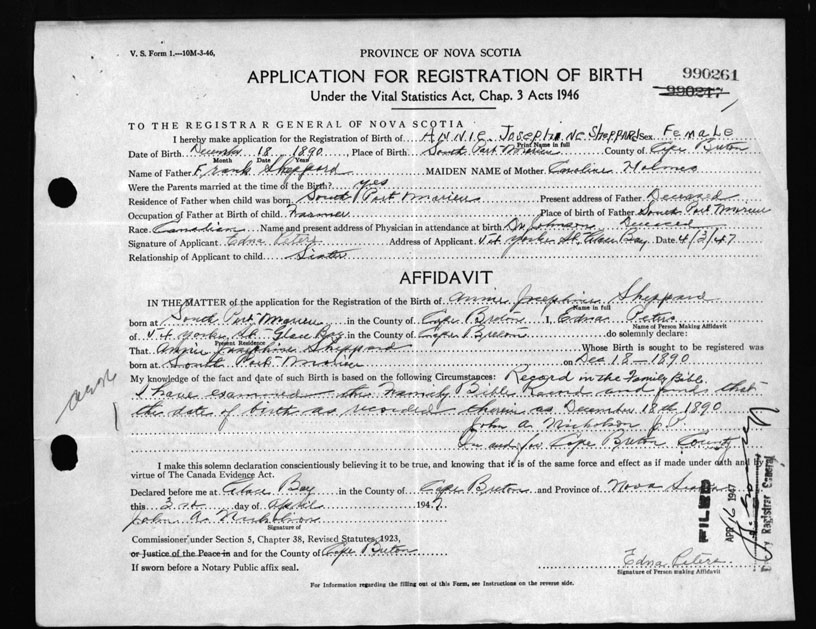 V. S. Form 1.—10M-3-46,
PROVINCE OF NOVA SCOTIA
APPLICATION FOR REGISTRATION OF BIRTH
990261
990247
Under the Vital Statistics Act, Chap. 3 Acts 1946
TO THE REGISTRAR GENERAL OF NOVA SCOTIA
I hereby make application for the Registration of Birth of ANNIE JOSEPHINE SHEPPARD Sex FEMALE
Print Name in full
Date of Birth December 18 1890 Place of Birth South Port Morien County of Cape Breton
Month Date Year
Name of Father Frank Sheppard MAIDEN NAME of Mother Caroline Holmes
Were the Parents married at the time of the Birth? yes
Residence of Father when child was born South Port Morien Present address of Father Deceased
Occupation of Father at Birth of child Farmer Place of birth of Father South Port Morien
Race Canadian Name and present address of Physician in attendance at birth Dr Johnson Deceased
Signature of Applicant Edna Peters Address of Applicant 54 Yorke St. Glace Bay Date 4/2/47
Relationship of Applicant to child Sister
AFFIDAVIT
IN THE MATTER of the application for the Registration of the Birth of Annie Josephine Sheppard
Name in full
born at South Port Morien in the County of Cape Breton I, Edna Peters
Name of Person Making Affidavit
of 54 Yorke St. Glace Bay in the County of Cape Breton do solemnly declare:
Present Residence
That Annie Josephine Sheppard Whose Birth is sought to be registered was
born at South Port Morien on Dec 18 - 1890
My knowledge of the fact and date of such Birth is based on the following Circumstances: Record in the Family Bible
I have examined the Family Bible Record and find that
the date of birth as recorded therein as December 18th 1890
John A. Nicholson J.P.
In and for Cape Breton County
I make this solemn declaration conscientiously believing it to be true, and knowing that it is of the same force and effect as if made under oath and by
virtue of The Canada Evidence Act.
Declared before me at Glace Bay in the County of Cape Breton and Province of Nova Scotia
this 2nd day of April 1947.
John A. Nicholson
Signature of
Commissioner under Section 5, Chapter 38, Revised Statutes, 1923,
or Justice of the Peace in and for the County of Cape Breton
If sworn before a Notary Public affix seal.
Edna Peters
Signature of Person making Affidavit
FILED
APR 16 1947
Registrar General
For Information regarding the filling out of this Form, see Instructions on the reverse side.